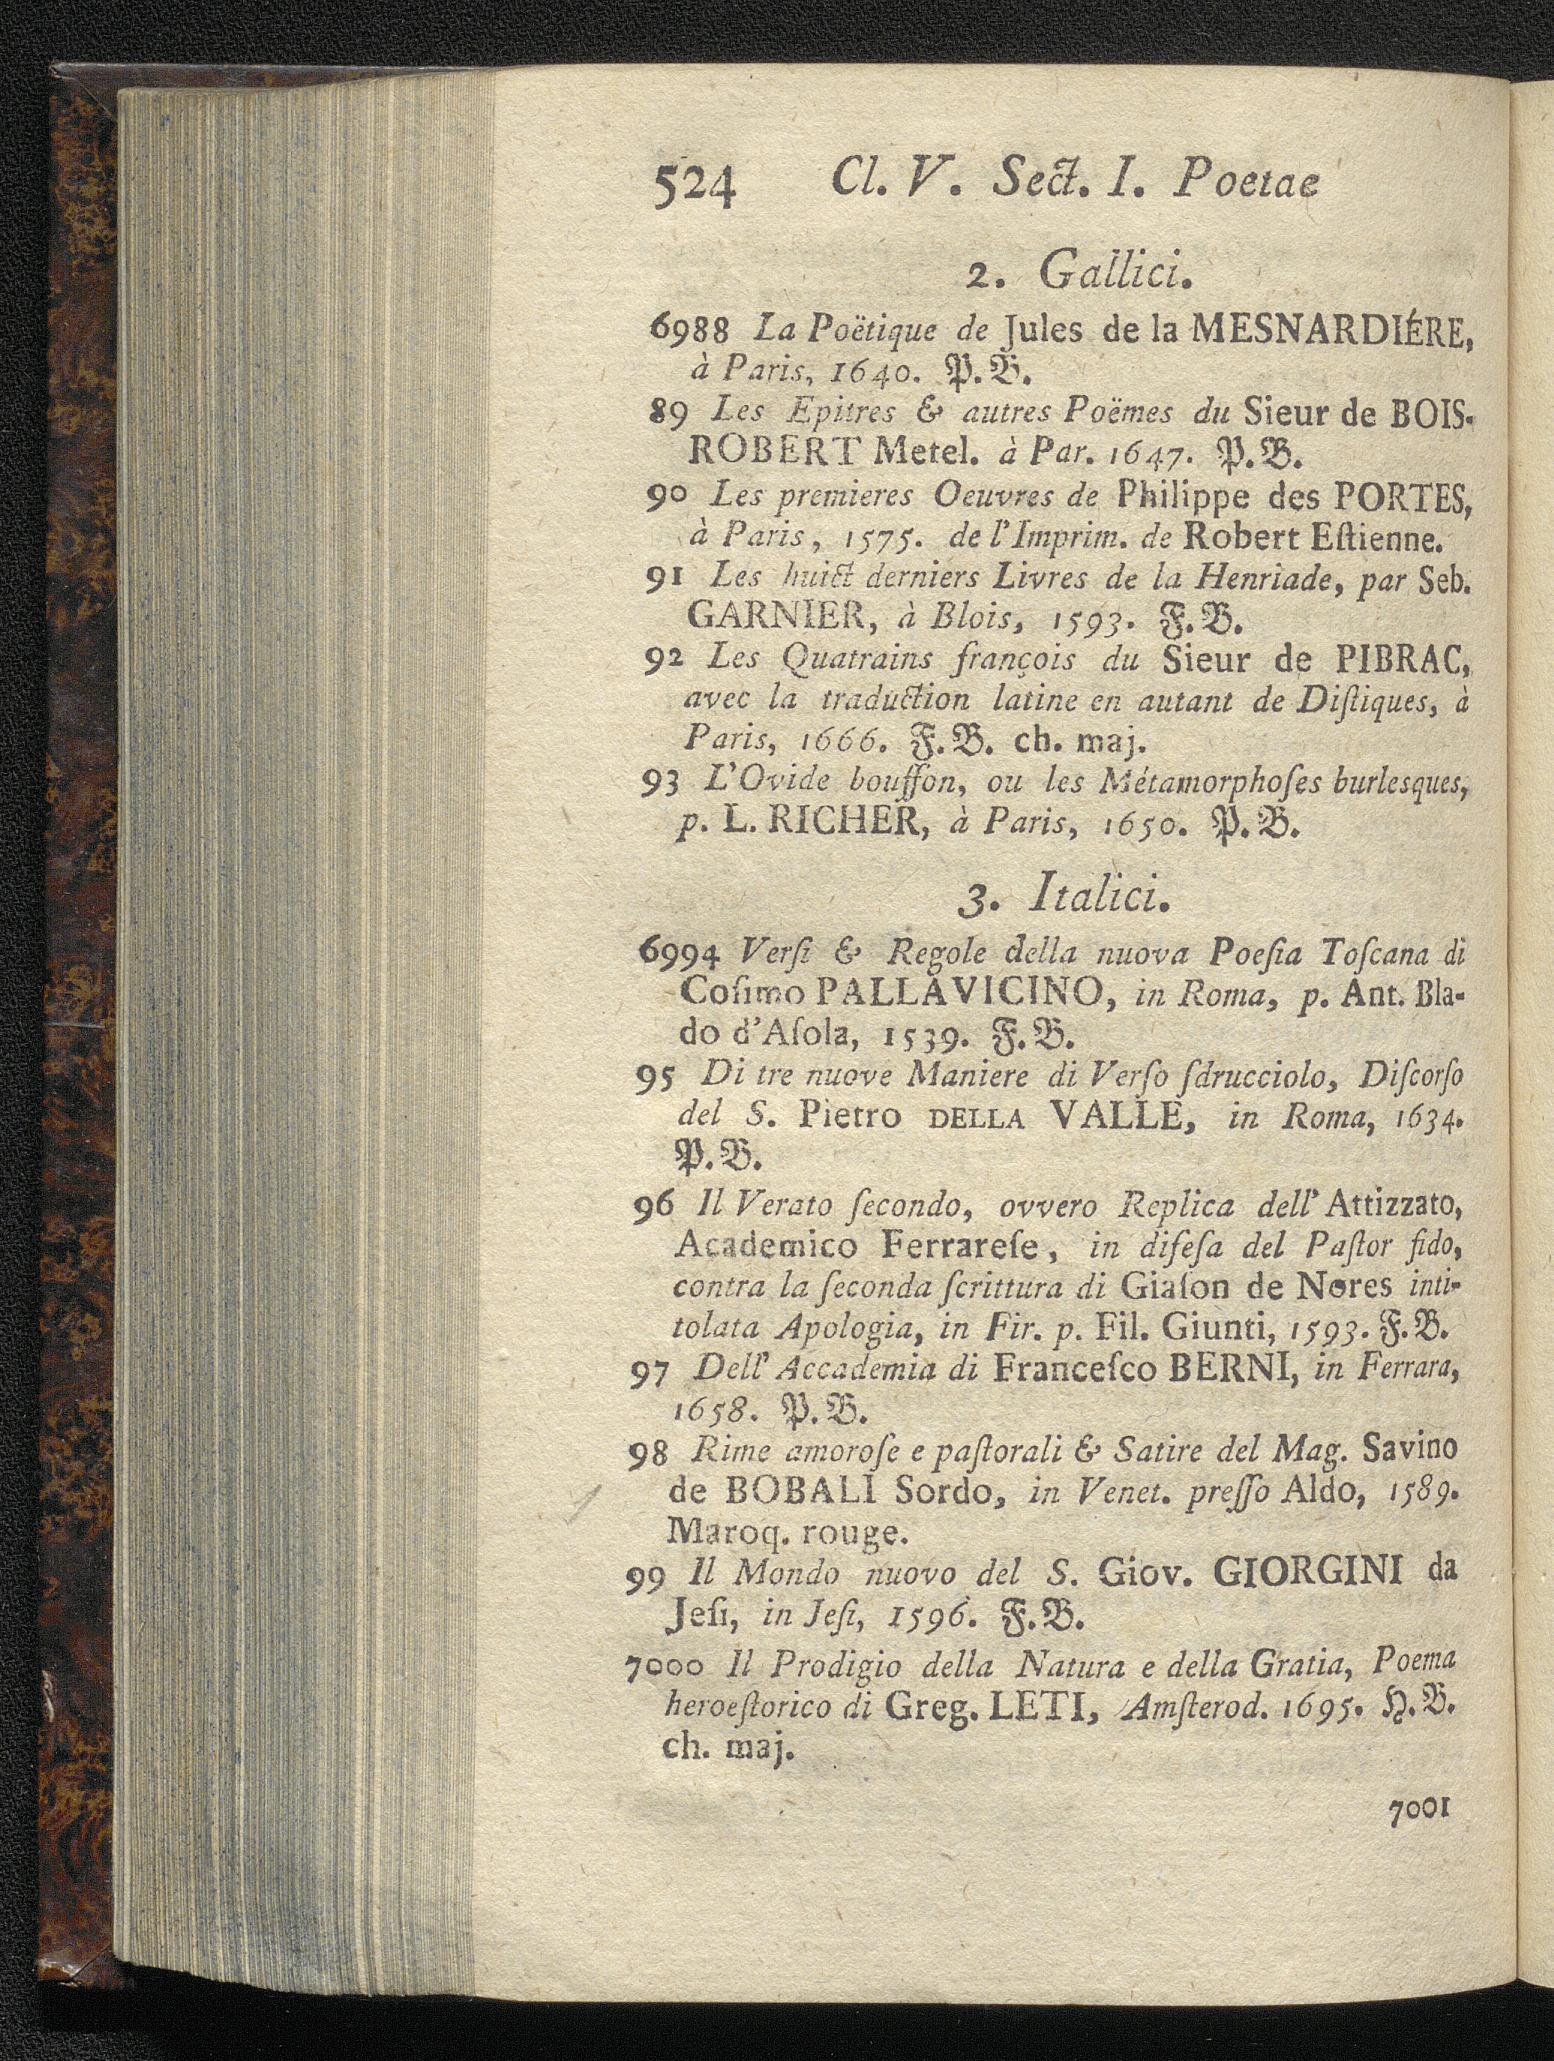 524 Cl. V. Sect. I. Poetae
2. Gallici.
6988 La Poëtique de Jules de la MESNARDIÉRE,
à Paris, 1640. P. B.
89 Les Epitres & autres Poëmes du Sieur de BOIS-
ROBERT Metel. à Par. 1647. P. B.
90 Les premieres Oeuvres de Philippe des PORTES,
à Paris, 1575. de l'Imprim. de Robert Eſtienne.
91 Les huict derniers Livres de la Henriade, par Seb.
GARNIER, à Blois, 1593. F. B.
92 Les Quatrains françois du Sieur de PIBRAC,
avec la traduction latine en autant de Diſtiques, à
Paris, 1666. F. B. ch. maj.
93 L'Ovide bouffon, ou les Métamorphoſes burlesques,
p. L. RICHER, à Paris, 1650. P. B.
3. Italici.
6994 Verſi & Regole della nuova Poeſia Toſcana di
Coſimo PALLAVICINO, in Roma, p. Ant. Bla-
do d'Aſola, 1539. F. B.
95 Di tre nuove Maniere di Verſo ſdrucciolo, Diſcorſo
del S. Pietro DELLA VALLE, in Roma, 1634.
P. B.
96 Il Verato ſecondo, ovvero Replica dell' Attizzato,
Academico Ferrareſe, in difeſa del Paſtor fido,
contra la ſeconda ſcrittura di Giaſon de Nores inti-
tolata Apologia, in Fir. p. Fil. Giunti, 1593. F. B.
97 Dell' Accademia di Franceſco BERNI, in Ferrara,
1658. P. B.
98 Rime amoroſe e paſtorali & Satire del Mag. Savino
de BOBALI Sordo, in Venet. preſſo Aldo, 1589.
Maroq. rouge.
99 Il Mondo nuovo del S. Giov. GIORGINI da
Jeſi, in Jeſi, 1596. F. B.
7000 Il Prodigio della Natura e della Gratia, Poema
heroeſtorico di Greg. LETI, Amſterod. 1695. H. B.
ch. maj.
7001